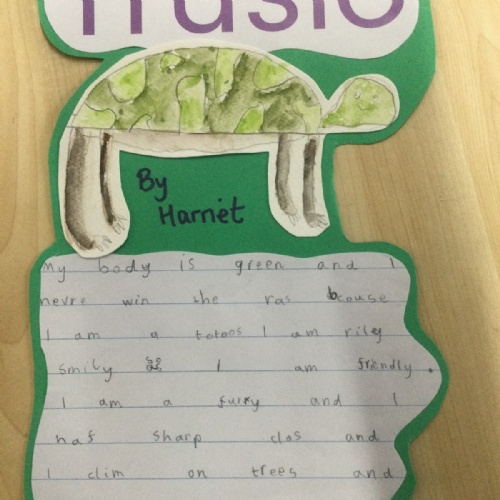 By
Harriet
My body is green and I
nevre win the ras bcouse
I am a totoos I am rily
smily I am friendly.
I am a furry and I
haf sharp clos and
I clim on trees and